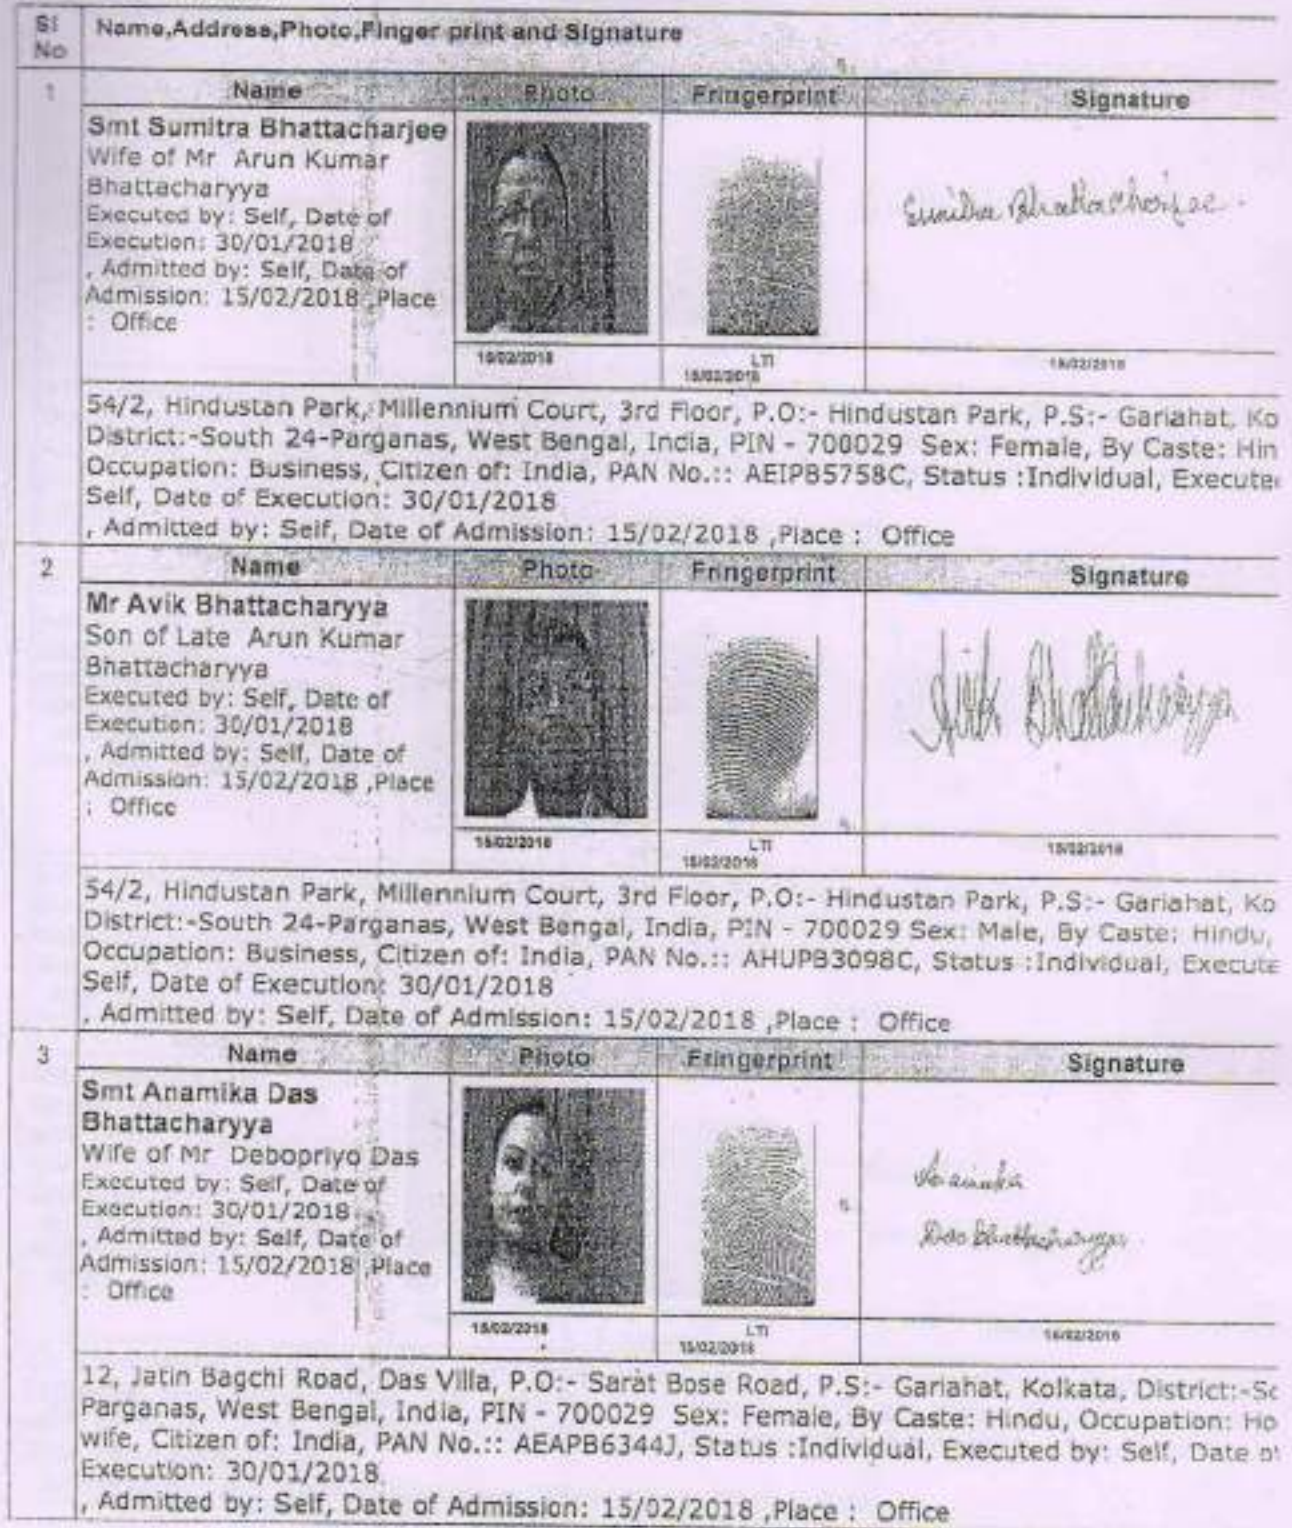 Sl No
Name,Address,Photo,Finger print and Signature
1
Name Photo Fringerprint Signature
Smt Sumitra Bhattacharjee
Wife of Mr Arun Kumar
Bhattacharyya
Executed by: Self, Date of
Execution: 30/01/2018
, Admitted by: Self, Date of
Admission: 15/02/2018 ,Place
: Office
Sumitra Bhattacharjee
15/02/2018 LTI 15/02/2018
15/02/2018
54/2, Hindustan Park, Millennium Court, 3rd Floor, P.O:- Hindustan Park, P.S:- Gariahat, Ko
District:-South 24-Parganas, West Bengal, India, PIN - 700029 Sex: Female, By Caste: Hin
Occupation: Business, Citizen of: India, PAN No.:: AEIPB5758C, Status :Individual, Execute
Self, Date of Execution: 30/01/2018
, Admitted by: Self, Date of Admission: 15/02/2018 ,Place : Office
2
Name Photo Fringerprint Signature
Mr Avik Bhattacharyya
Son of Late Arun Kumar
Bhattacharyya
Executed by: Self, Date of
Execution: 30/01/2018
, Admitted by: Self, Date of
Admission: 15/02/2018 ,Place
: Office
Avik Bhattacharyya
15/02/2018 LTI 15/02/2018
15/02/2018
54/2, Hindustan Park, Millennium Court, 3rd Floor, P.O:- Hindustan Park, P.S:- Gariahat, Ko
District:-South 24-Parganas, West Bengal, India, PIN - 700029 Sex: Male, By Caste: Hindu,
Occupation: Business, Citizen of: India, PAN No.:: AHUPB3098C, Status :Individual, Execute
Self, Date of Execution: 30/01/2018
, Admitted by: Self, Date of Admission: 15/02/2018 ,Place : Office
3
Name Photo Fringerprint Signature
Smt Anamika Das
Bhattacharyya
Wife of Mr Debopriyo Das
Executed by: Self, Date of
Execution: 30/01/2018
, Admitted by: Self, Date of
Admission: 15/02/2018 ,Place
: Office
Anamika
Das Bhattacharyya
15/02/2018 LTI 15/02/2018
15/02/2018
12, Jatin Bagchi Road, Das Villa, P.O:- Sarat Bose Road, P.S:- Gariahat, Kolkata, District:-So
Parganas, West Bengal, India, PIN - 700029 Sex: Female, By Caste: Hindu, Occupation: Ho
wife, Citizen of: India, PAN No.:: AEAPB6344J, Status :Individual, Executed by: Self, Date of
Execution: 30/01/2018
, Admitted by: Self, Date of Admission: 15/02/2018 ,Place : Office